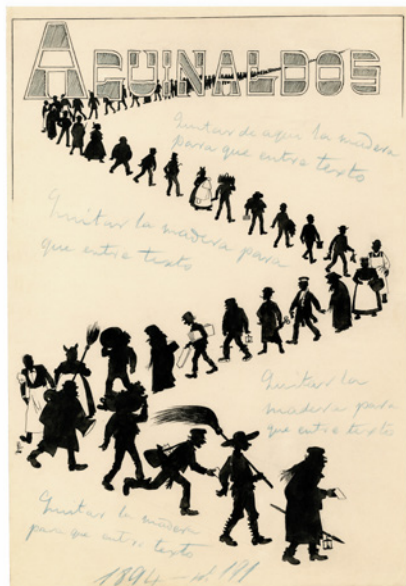 AGUINALDOS
Quitar de aquí la madera
para que entre texto
Quitar la madera para
que entre texto
Quitar la
madera para
que entre texto
Quitar la madera
para que entre texto
1894 – nº 191